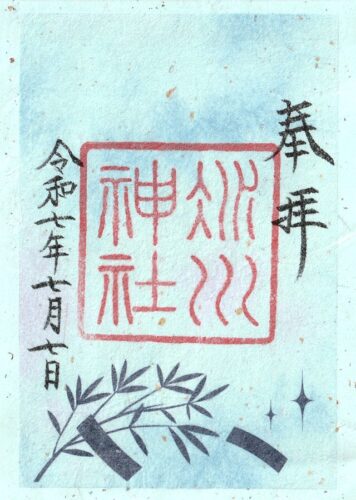 奉拝
氷川
神社
令和七年七月七日